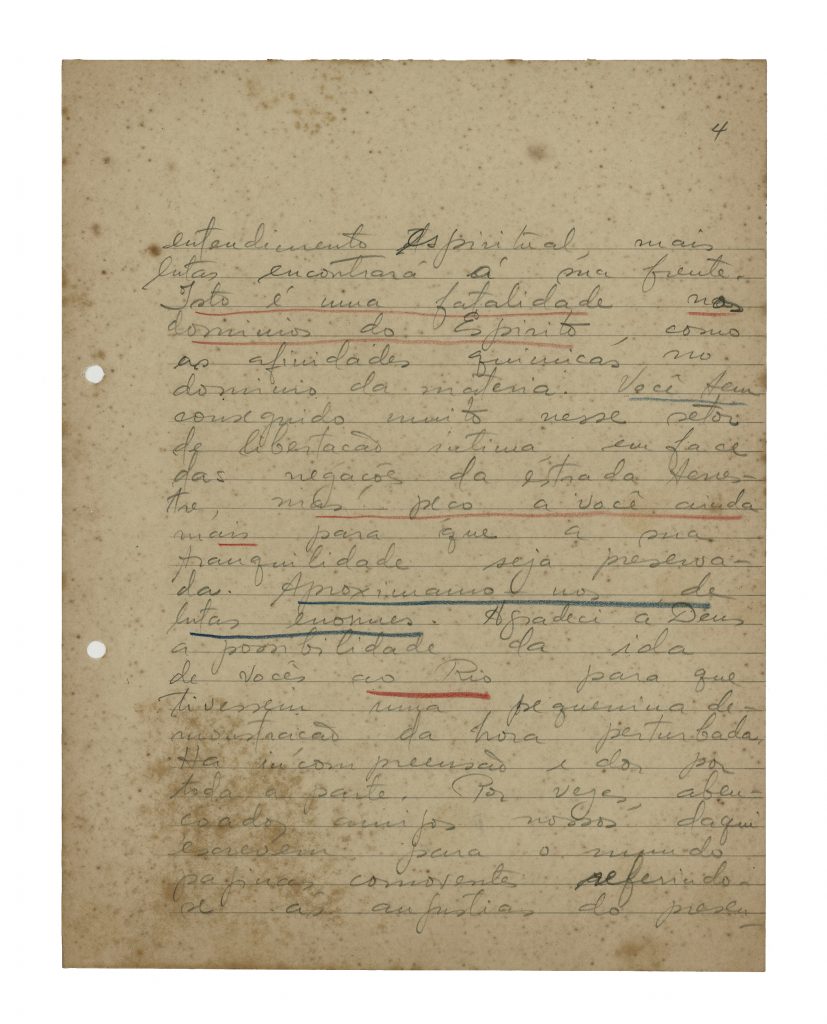 4
entendimento Espiritual mais
lutas encontrará á sua frente.
Isto é uma fatalidade nos
dominios do Espirito, como
as afinidades quimicas no
dominio da materia. Você tem
conseguido muito nesse setor
de libertacão intima em face
das negacões da estrada terres-
tre, mas peco a você ainda
mais para que a sua
tranquilidade seja preserva-
da. Aproximamo nos de
lutas enormes. Agradeci a Deus
a possibilidade da ida
de vocês ao Rio para que
tivessem uma pequenina de-
monstracão da hora perturbada.
Ha incompreensão e dor por
toda a parte. Por vezes, aben-
coados amigos nossos daqui
escrevem para o mundo
paginas comoventes referindo-
se ás angustias do presen-